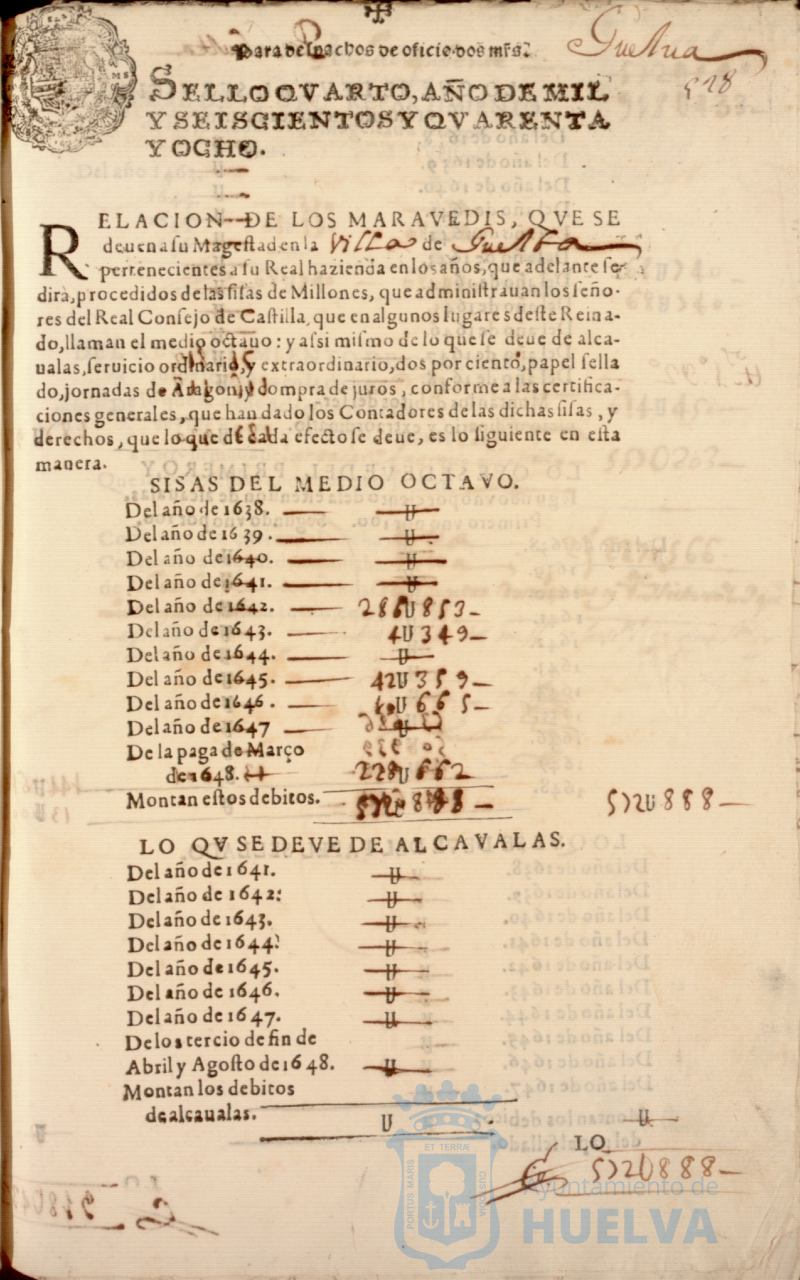 Para despachos de oficio dos mrs.
Guelua
528
SELLO QVARTO, AÑO DE MIL
Y SEISCIENTOS Y QVARENTA
Y OCHO.
RELACION DE LOS MARAVEDIS, QVE SE
deuen a su Magestad en la Villa de Guelba
pertenecientes a su Real hazienda en los años, que adelante se
dirà, procedidos de las sisas de Millones, que administrauan los seño-
res del Real Consejo de Castilla, que en algunos lugares deste Reina-
do, llaman el medio octauo: y assi mismo de lo que se deue de alca-
ualas, seruicio ordinario, y extraordinario, dos por ciento, papel sella
do, jornadas de Aragon, y compra de juros, conforme a las certifica-
ciones generales, que han dado los Contadores de las dichas sisas, y
derechos, que lo que de cada efecto se deue, es lo siguiente en esta
manera.
SISAS DEL MEDIO OCTAVO.
Del año de 1638. U
Del año de 1639. U
Del año de 1640. U
Del año de 1641. U
Del año de 1642.
Del año de 1643. 4U349
Del año de 1644. U
Del año de 1645. 42U359
Del año de 1646.
Del año de 1647 U
De la paga de Março
de 1648.
Montan estos debitos. 5)2U888
LO QV SE DEVE DE ALCAVALAS.
Del año de 1641. U
Del año de 1642: U
Del año de 1643. U
Del año de 1644. U
Del año de 1645. U
Del año de 1646. U
Del año de 1647. U
De los tercio de fin de
Abril y Agosto de 1648. U
Montan los debitos
de alcaualas. U U
LO
5)2U888
ET TERRÆ
PORTUS MARIS
CUSTODIA
Ayuntamiento de
HUELVA